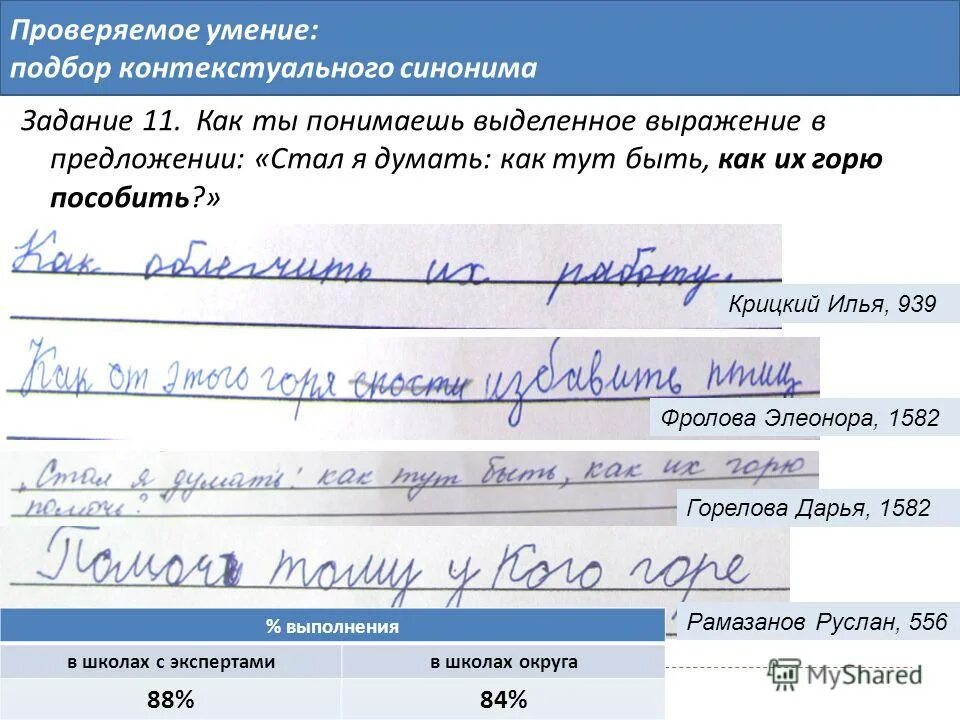 Проверяемое умение:
подбор контекстуального синонима
Задание 11. Как ты понимаешь выделенное выражение в
предложении: «Стал я думать: как тут быть, как их горю
пособить?»
Как облегчить их работу.
Крицкий Илья, 939
Как от этого горя спости избавить птиц
Фролова Элеонора, 1582
„Стал я думать: как тут быть, как их горю
помочь?"
Горелова Дарья, 1582
Помочь тому у Кого горе
Рамазанов Руслан, 556
% выполнения
в школах с экспертами в школах округа
88% 84%
MyShared